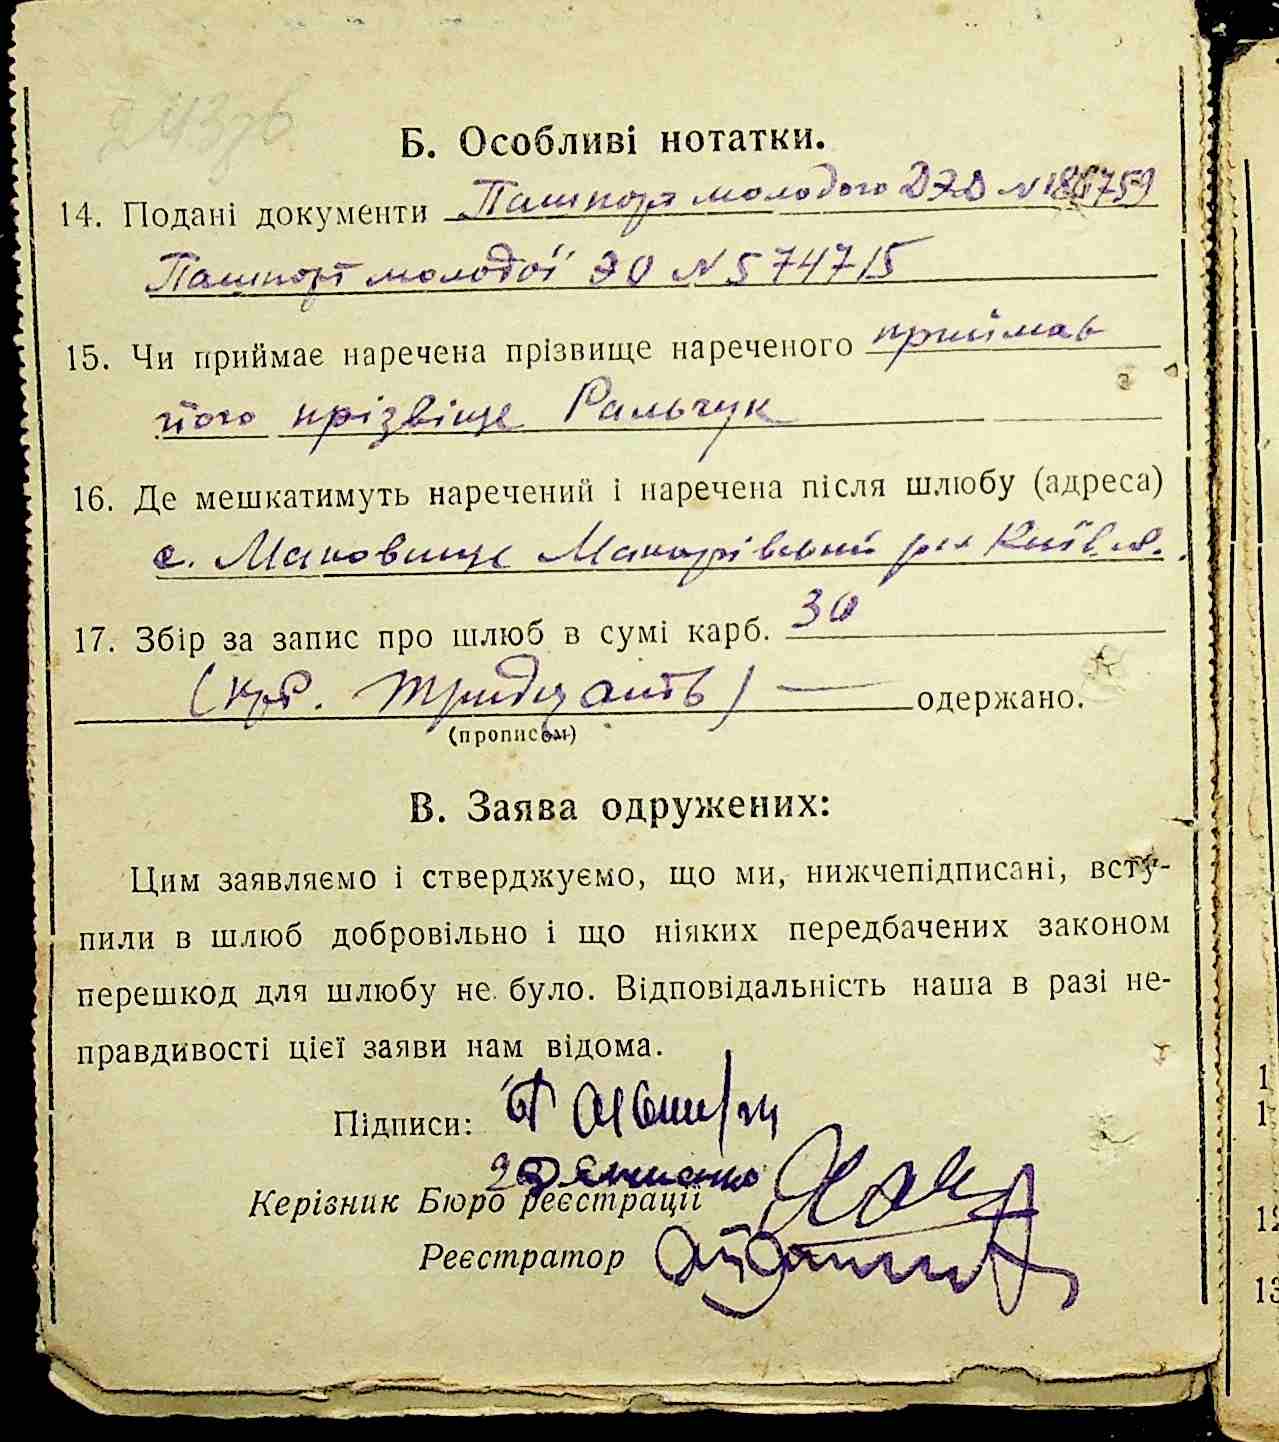 Б. Особливі нотатки.
14. Подані документи Пашпорт молодого ДЭД № 186759
Пашпорт молодої ЭО № 574715
15. Чи приймає наречена прізвище нареченого приймає
його прізвіще Ральчук
16. Де мешкатимуть наречений і наречена після шлюбу (адреса)
с. Маковище Макарівський р-н Київ. о.
17. Збір за запис про шлюб в сумі карб. 30
(крб. тридцать) — одержано.
(прописом)
В. Заява одружених:
Цим заявляємо і стверджуємо, що ми, нижчепідписані, всту-
пили в шлюб добровільно і що ніяких передбачених законом
перешкод для шлюбу не було. Відповідальність наша в разі не-
правдивості цієї заяви нам відома.
Підписи:
Керізник Бюро реєстрації
Реєстратор
1
1
12
13